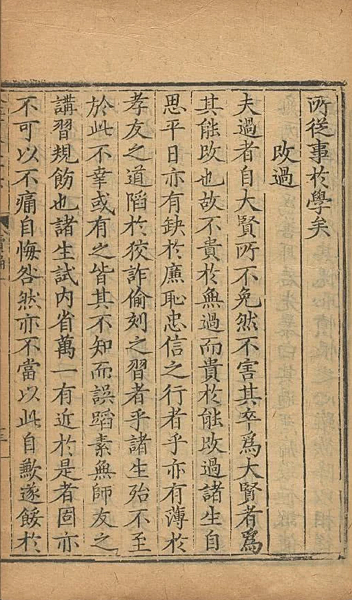 所從事於學矣
攺過
夫過者自大賢所不免然不害其卒爲大賢者爲
其能攺也故不貴於無過而貴於能攺過諸生自
思平日亦有缺於廉恥忠信之行者乎亦有薄於
孝友之道陷於狡詐偷刻之習者乎諸生殆不至
於此不幸或有之皆其不知而誤蹈素無師友之
講習規飭也諸生試內省萬一有近於是者固亦
不可以不痛自悔咎然亦不當以此自歉遂餒於